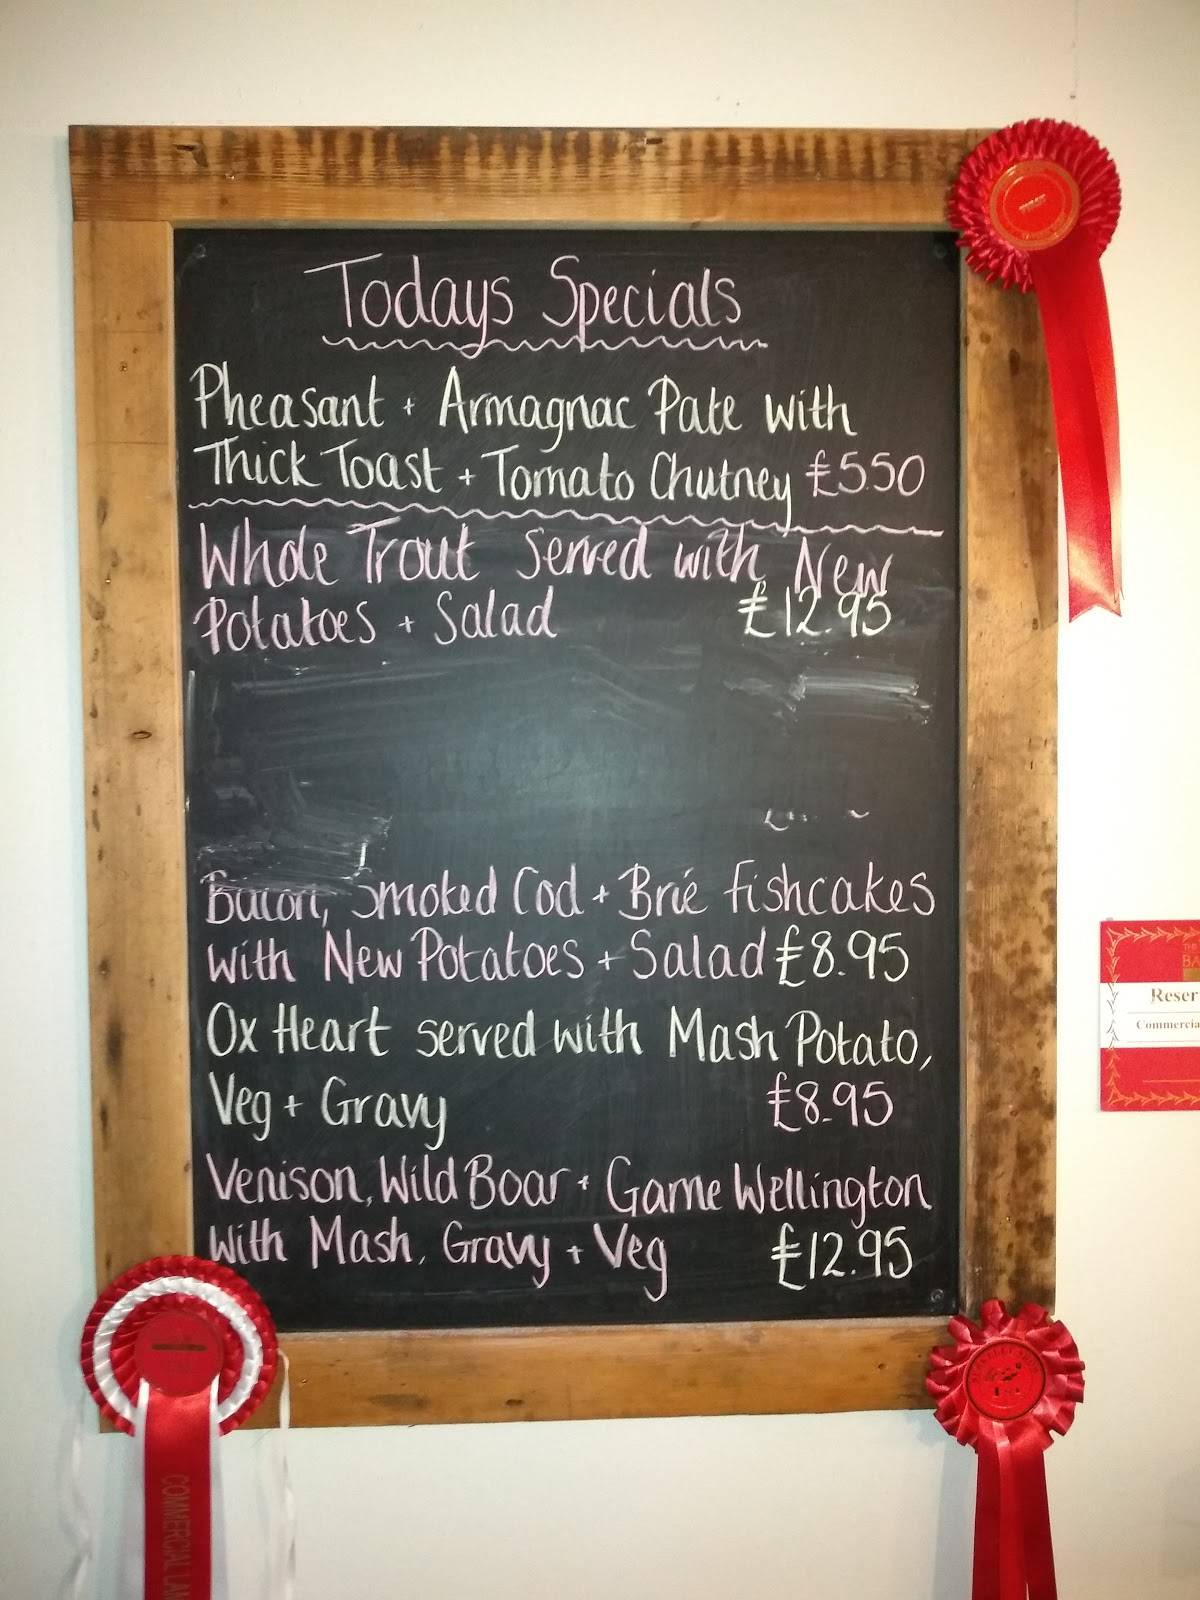 Todays Specials
Pheasant + Armagnac Pate with
Thick Toast + Tomato Chutney £5.50
Whole Trout Served with New
Potatoes + Salad £12.95
Bacon, Smoked Cod + Brié fishcakes
with New Potatoes + Salad £8.95
Ox Heart served with Mash Potato,
Veg + Gravy £8.95
Venison, Wild Boar + Game Wellington
With Mash, Gravy + Veg £12.95
COMMERCIAL LAM
THE
BA
Reser
Commercia